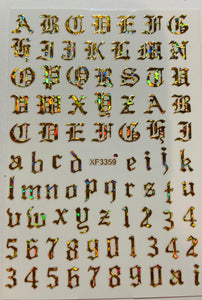 A B C D E F G
H I J K L M N
O P Q R S T
U V W X Y Z A B
C D E F G H I
a b c d XF3359 e i j k
l m n o p q r s t u
v w x y z 1 2 3 4
5 6 7 8 9 0 1 2 3 4 5 6
3 4 5 6 7 8 9 0 a i